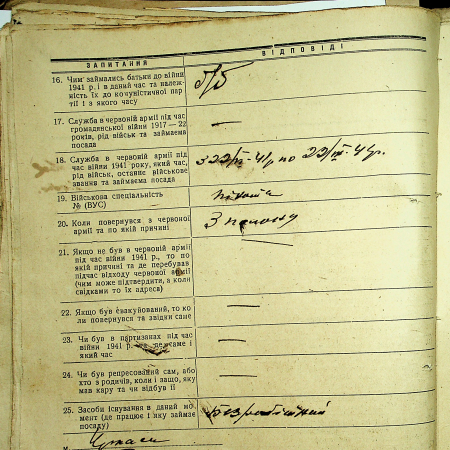 ЗАПИТАННЯ
ВІДПОВІДІ
16. Чим займались батьки до війни
1941 р. і в даний час та належ-
ність їх до комуністичної пар-
тії і з якого часу
б/п
17. Служба в червоній армії під час
громадянської війни 1917—22
років, рід військ та займаема
посада
—
18. Служба в червоній армії під
час війни 1941 року, який час,
рід військ, останнє військове
звання та займаема посада
19. Військова спеціальність
№ (ВУС)
піхота
20. Коли повернувся з червоної
армії та по якій причині
З полону
21. Якщо не був в червоній армії
під час війни 1941 р., то по
якій причині та де перебував
підчас відходу червоної армії
(чим може підтвердити, в коли
свідками то їх адреса)
—
22. Якщо був евакуйований, то ко
ли повернувся та звідки саме
—
23. Чи був в партизанах під час
війни 1941 р. де саме і
який час
—
24. Чи був репресований сам, або
хто з родичів, коли і защо, яку
мав кару та чи відбув її
—
25. Засоби існування в даний мо-
мент (де працює і яку займає
посаду)
Безробітний